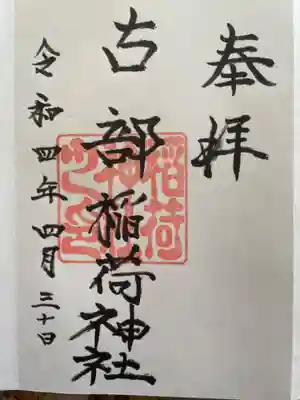 奉拝
古部稲荷神社
令和四年四月三十日